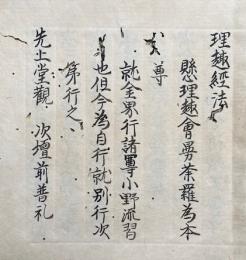 理趣經法
懸理趣會曼荼羅為本
尊
就金界行諸尊小野流習
也但今為自行就別行次
第行之
先上堂觀 次壇前普礼